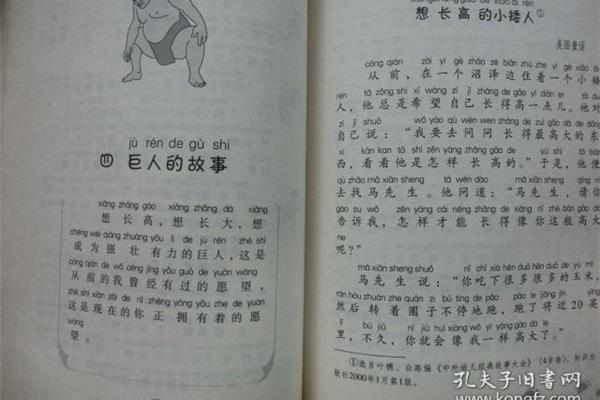 jù rén de gù shi
四 巨人的故事
xiǎng zhǎng gāo xiǎng zhǎng dà xiǎng
想长高，想长大，想
chéng wéi qiáng zhuàng yǒu lì de jù rén zhè shì
成为强壮有力的巨人，这是
cóng qián de wǒ céng jīng yǒu guò de yuàn wàng
从前的我曾经有过的愿望，
zhè shì xiàn zài de nǐ zhèng yōng yǒu zhe de yuàn
这是现在的你正拥有着的愿
wàng
望。
xiǎng zhǎng gāo de xiǎo ǎi rén
想长高的小矮人①
英国童话
cóng qián zài yí gè zhǎo zé biān zhù zhe yí gè xiǎo ǎi
从前，在一个沼泽边住着一个小矮
rén tā zǒng shì xī wàng zì jǐ zhǎng de gāo yì diǎn er tā duì
人，他总是希望自己长得高一点儿。他对
zì jǐ shuō wǒ yào qù wèn wen zhǎng de zuì gāo dà de dōng
自己说：“我要去问问长得最高大的东
xi kàn kan tā shì zěn yàng zhǎng gāo de yú shì tā biàn
西，看看他是怎样长高的。”于是，他便
qù zhǎo mǎ xiān sheng tā wèn dào mǎ xiān sheng qǐng nǐ
去找马先生。他问道：“马先生，请你
gào su wǒ zěn yàng cái néng zhǎng de xiàng nǐ zhè bān gāo dà
告诉我，怎样才能长得像你这般高大
ne
呢？”
mǎ xiān sheng shuō nǐ chī xià hěn duō hěn duō de yù mǐ
马先生说：“你吃下很多很多的玉米，
rán hòu zhuàn zhe quān zi bù tíng de pǎo pǎo le jiāng jìn yīng
然后转着圈子不停地跑，跑了将近20英
lǐ bù jiǔ nǐ jiù huì xiàng wǒ yí yàng gāo dà le
里，不久，你就会像我一样高大了。”
①选自叶 、白路编《中外幼儿经典故事大全》（4岁卷），知识出
版社2000年1月第1版。
孔夫子旧书网
www.kongfz.com